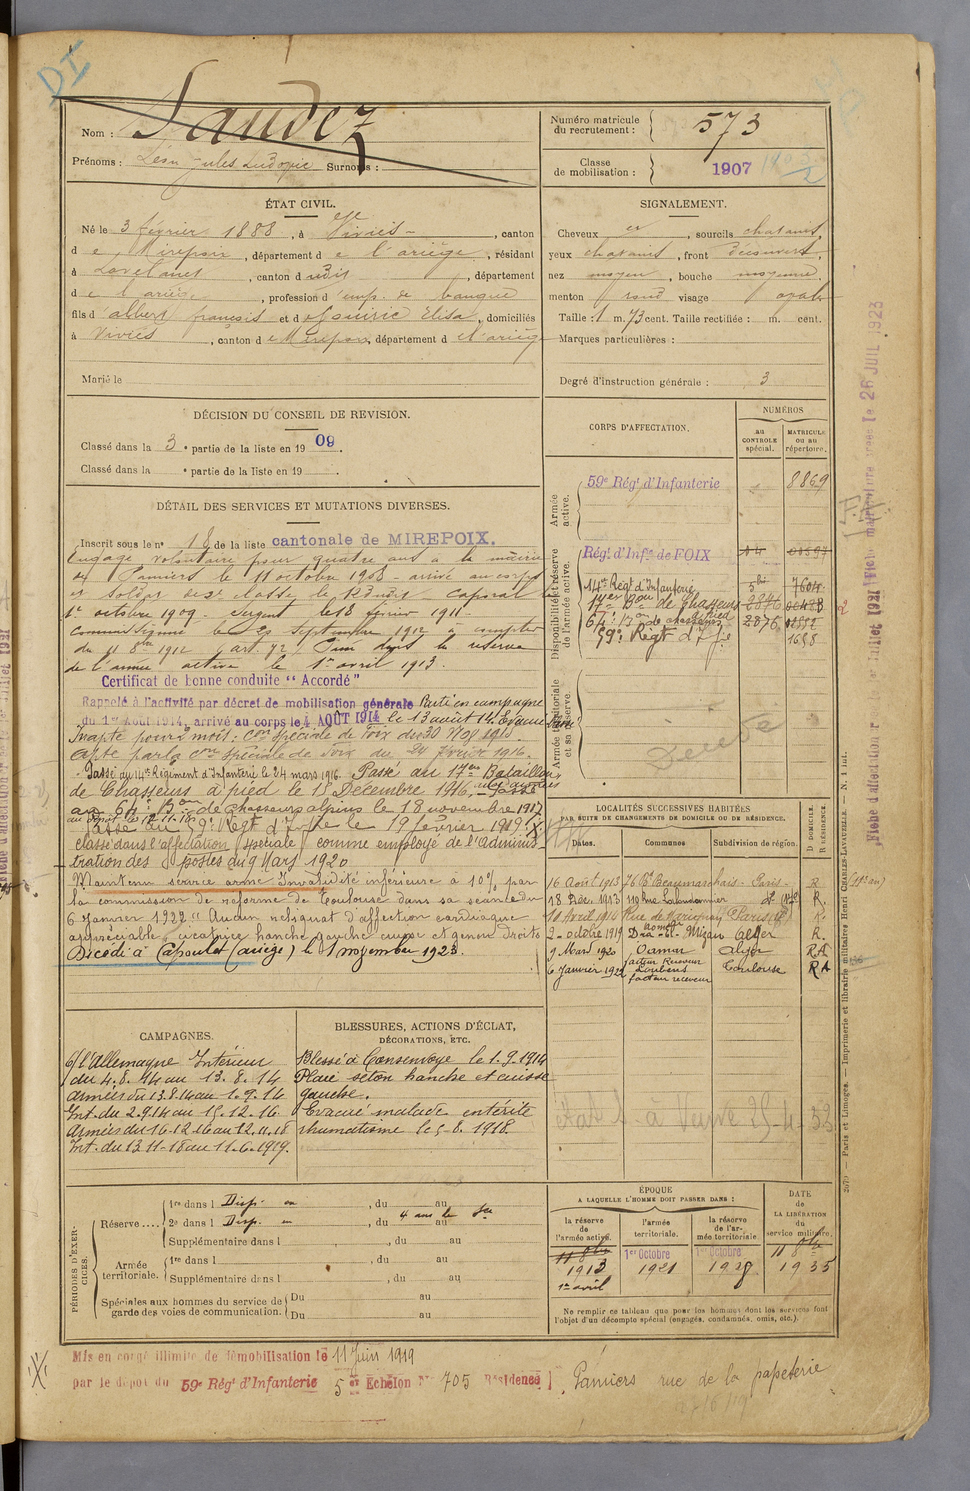 DI
Nom :
Prénoms : Léon Jules Ludovic Surnoms :
Numéro matricule du recrutement : 573
Classe de mobilisation : 1907
ÉTAT CIVIL.
Né le 3 février 1888, à Viviès, canton
d e Mirepoix, département d e l'ariège, résidant
à Lavelanet, canton d udit, département
d e l'ariège, profession d' emp. de banque
fils d' albert françois et d Elisa, domiciliés
à Viviès, canton d e Mirepoix, département d e l'ariège
Marié le
SIGNALEMENT.
Cheveux et, sourcils chatains,
yeux chatains, front Découvert,
nez moyen, bouche moyenne,
menton rond visage oval
Taille : 1 m. 73 cent. Taille rectifiée : m. cent.
Marques particulières :
Degré d'instruction générale : 3
DÉCISION DU CONSEIL DE REVISION.
Classé dans la 3e partie de la liste en 1909.
Classé dans la e partie de la liste en 19 .
DÉTAIL DES SERVICES ET MUTATIONS DIVERSES.
Inscrit sous le n° 18 de la liste cantonale de MIREPOIX.
Engagé volontaire pour quatre ans à la mairie
de Pamiers le 11 octobre 1908 - arrivé au corps
et soldat de 2e classe le dit - caporal le
1er octobre 1909 - Sergent le 13 février 1911 -
Commissionné le 29 septembre 1912 à compter
du 11 8bre 1912 (art. 72). Passé dans la réserve
de l'armée active le 1er avril 1913.
Certificat de bonne conduite "Accordé"
Rappelé à l'activité par décret de mobilisation générale Parti en campagne
du 1er Août 1914, arrivé au corps le 4 AOÛT 1914 le 13 août 14.
Inapte pour 2 mois : Con spéciale de Foix du 30 Nov 1915.
Apte par la Con spéciale de Foix du 24 février 1916.
Passé au 14e Régiment d'Infanterie le 24 mars 1916. Passé au 17eme Bataillon
de Chasseurs à pied le 15 Décembre 1916. Passé
au 64e Bon de chasseurs alpins le 18 novembre 1917
Passé au 59e Regt d'Infie le 19 février 1919
classé dans l'affectation spéciale comme employé de l'adminis-
tration des postes du 9 Mars 1920
Maintenu service armé Invalidité inférieure à 10% par
la commission de réforme de Toulouse dans sa séance du
6 Janvier 1922 "Aucun reliquat d'affection cardiaque
appréciable, cicatrice hanche gauche cuisse et genou droits
Décédé à Capoulet (ariège) le 1 novembre 1923.
CORPS D'AFFECTATION.
NUMÉROS
AU CONTROLE spécial.
MATRICULE OU AU répertoire.
Armée active.
59e Régt d'Infanterie 8869
Disponibilité et réserve de l'armée active.
Régt d'Infie de FOIX
14e Régt d'Infanterie 5bis 7604
17eme Bon de Chasseurs 2876
64e Bon de chasseurs 2876
59e Régt d'Ife 1688
Armée territoriale et sa réserve.
Décédé
LOCALITÉS SUCCESSIVES HABITÉES
PAR SUITE DE CHANGEMENTS DE DOMICILE OU DE RÉSIDENCE.
Dates. Communes Subdivision de région. D DOMICILE. R RÉSIDENCE.
16 Aout 1913 76 Bd Beaumarchais - Paris - R
18 Déc. 1913 R.
10 Avril 1914 Paris R.
2 - octobre 1919 Alger R.
9 Mars 1920 Oamar Alger RA
facteur Receveur
6 Janvier 1922 Loubens Toulouse RA
facteur receveur
CAMPAGNES.
C/ l'Allemagne Intérieur
du 4.8.14 au 13.8.14
Armées du 13.8.14 au 1.9.14
Int. du 2.9.14 au 15.12.16
Armées du 16.12.16 au 12.11.18
Int. du 13.11.18 au 11.6.1919.
BLESSURES, ACTIONS D'ÉCLAT,
DÉCORATIONS, ETC.
Blessé à Consenvoye le 1.9.1914
Plaie séton hanche et cuisse
gauche.
Evacué malade entérite
rhumatisme le 5-8.1918.
PÉRIODES D'EXERCICES.
Réserve.... 1re dans l Disp. , du au
2e dans l Disp. , du au
Supplémentaire dans l , du au
Armée territoriale. 1re dans l , du au
Supplémentaire dans l , du au
Spéciales aux hommes du service de garde des voies de communication. Du au
Du au
ÉPOQUE
A LAQUELLE L'HOMME DOIT PASSER DANS :
la réserve de l'armée active.
l'armée territoriale.
la réserve de l'armée territoriale
DATE de LA LIBÉRATION du service militaire.
11 8bre 1913 1er avril
1er Octobre 1921
1er Octobre 1928
11 8bre 1935
Ne remplir ce tableau que pour les hommes dont les services font
l'objet d'un décompte spécial (engagés, condamnés, omis, etc.).
Mis en congé illimité de démobilisation le 11 Juin 1919
par le dépôt du 59e Régt d'Infanterie 5e Echelon N° 705 Résidence Pamiers rue de la papeterie
Paris et Limoges. — Imprimerie et librairie militaires Henri CHARLES-LAVAUZELLE.